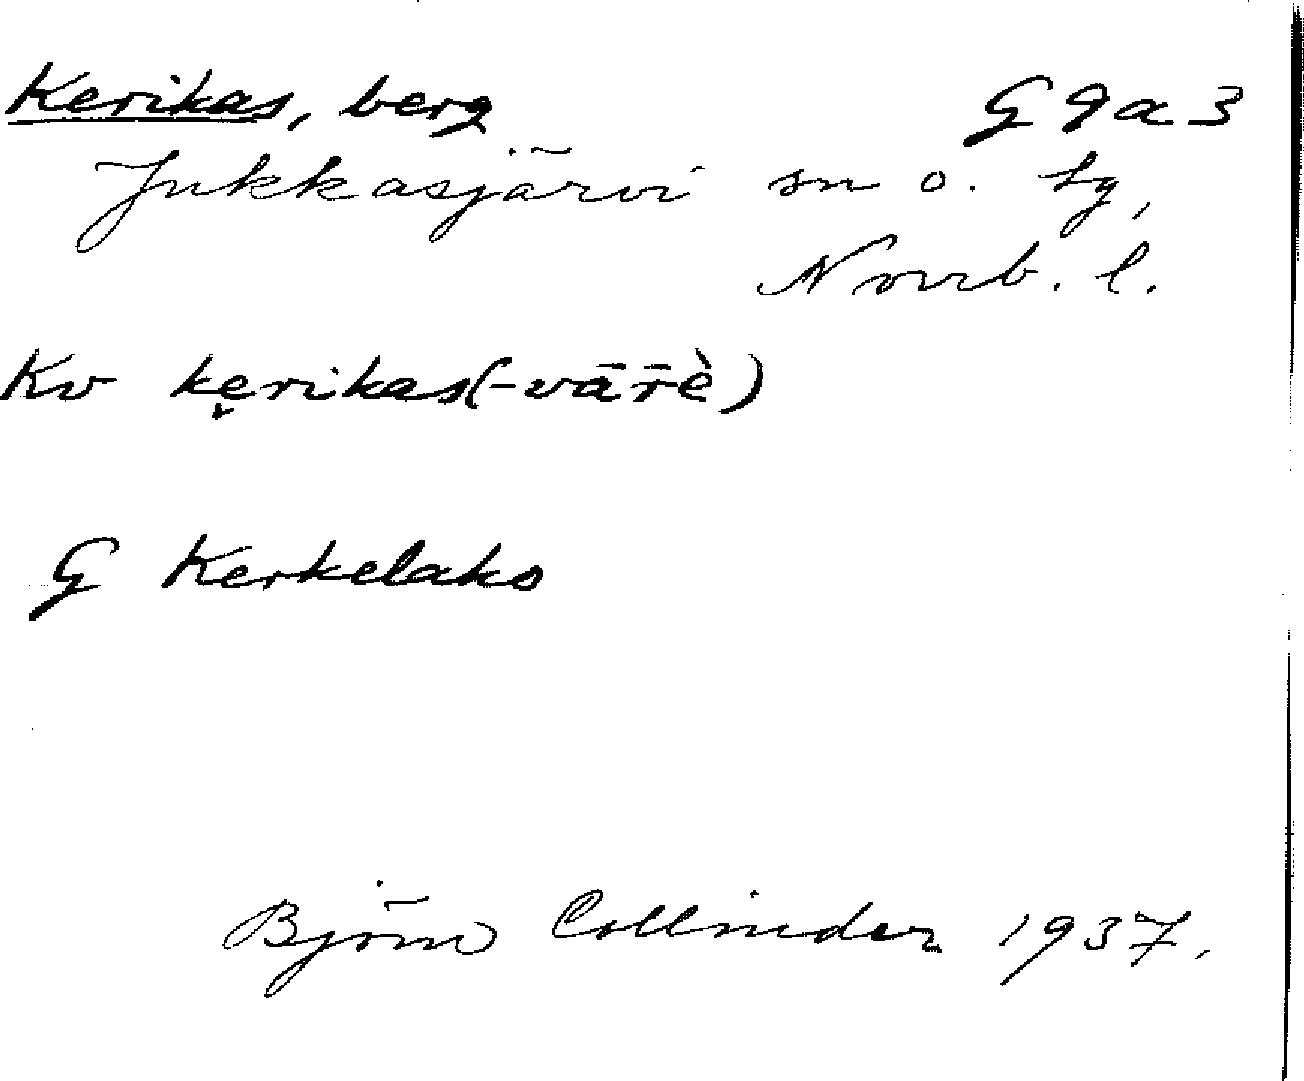 Kerikas, berg G9a3
Jukkasjärvi sn o. tg,
Norrb. l.
Kv kęrikas(-vār̄ὲ)
G Kerkelako
Björn Collinder 1937.